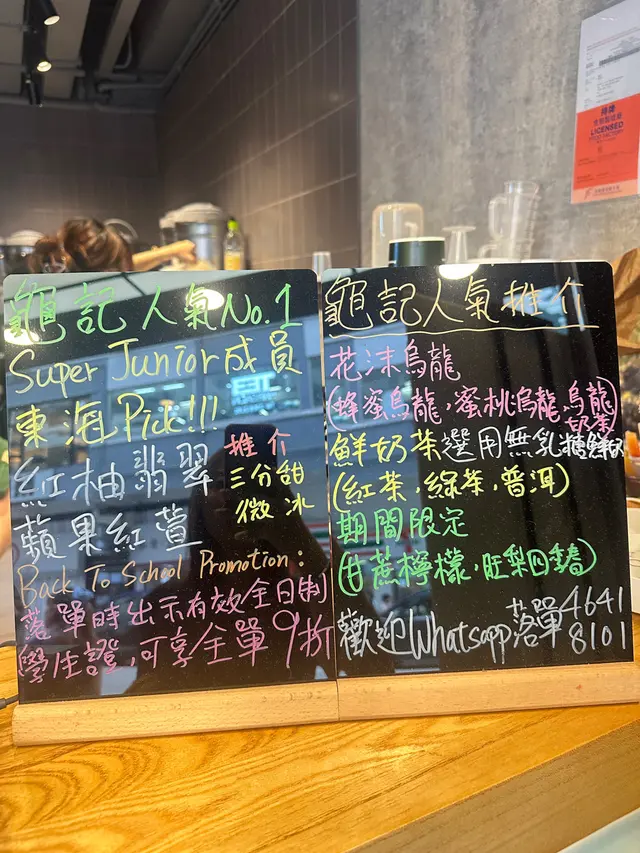 龜記人氣No.1
Super Junior成員
東海Pick!!!
紅柚翡翠
蘋果紅萱
推介
三分甜
微冰
Back To School Promotion:
落單時出示有效全日制
學生證,可享全單9折
龜記人氣推介
花沫烏龍
(蜂蜜烏龍,蜜桃烏龍,烏龍奶茶)
鮮奶茶選用無乳糖鮮奶
(紅茶,綠茶,普洱)
期間限定
(甘蔗檸檬,旺梨四季春)
歡迎Whatsapp落單4641
8101
LICENSED
FOOD FACTORY